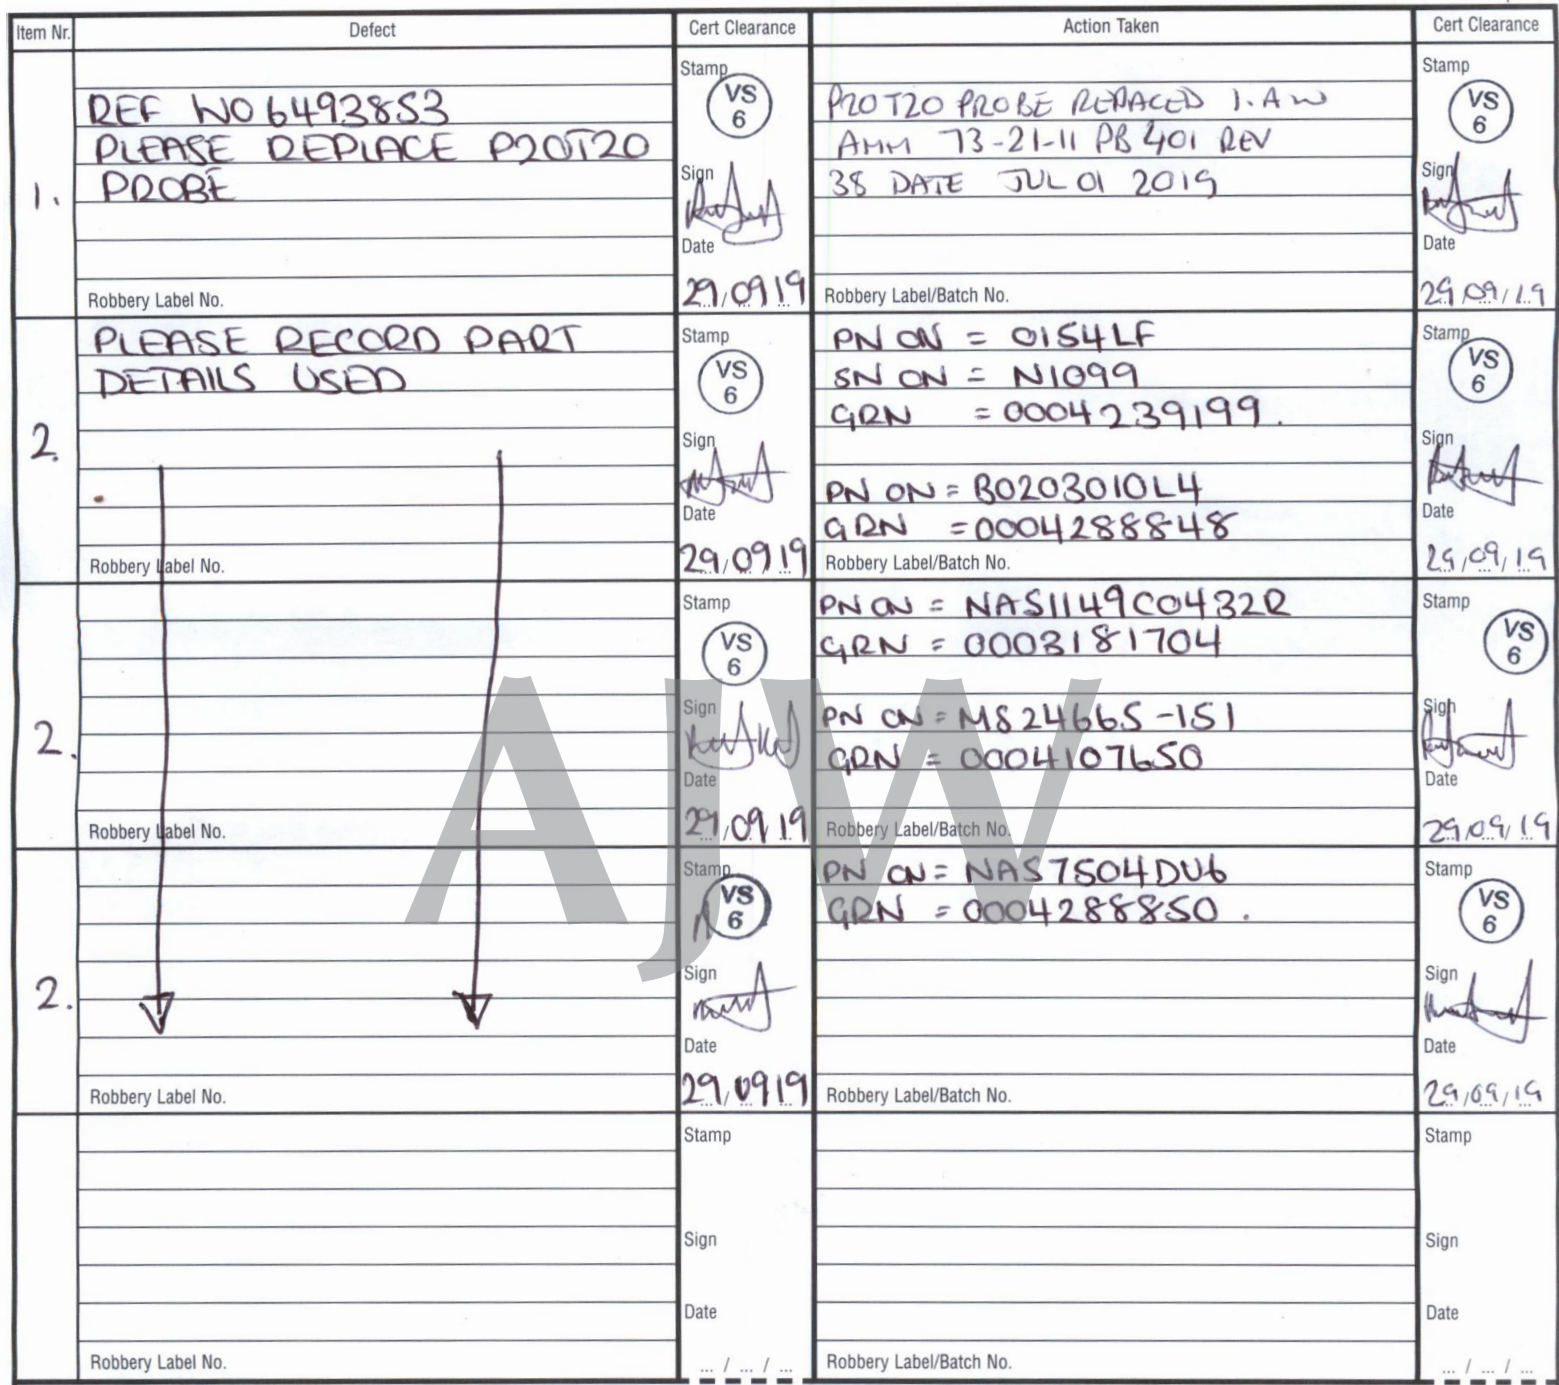 Item Nr. Defect Cert Clearance Action Taken Cert Clearance
1.
REF WO 6493853
PLEASE REPLACE P20T20
PROBE
Robbery Label No.
Stamp
VS
6
Sign
Date
29/09/19
P20T20 PROBE REPACED I.A.W
AMM 73-21-11 PB 401 REV
38 DATE JUL 01 2019
Robbery Label/Batch No.
Stamp
VS
6
Sign
Date
29/09/19
2.
PLEASE RECORD PART
DETAILS USED
Robbery Label No.
Stamp
VS
6
Sign
Date
29/09/19
PN ON = 0154LF
SN ON = N1099
GRN = 0004239199.
PN ON = B0203010L4
GRN = 0004288848
Robbery Label/Batch No.
Stamp
VS
6
Sign
Date
29/09/19
2.
Robbery Label No.
Stamp
VS
6
Sign
Date
29/09/19
PN ON = NAS1149C0432R
GRN = 0003181704
PN ON = MS24665-151
GRN = 0004107650
Robbery Label/Batch No.
Stamp
VS
6
Sign
Date
29/09/19
2.
Robbery Label No.
Stamp
VS
6
Sign
Date
29/09/19
PN ON = NAS7504DU6
GRN = 0004288850.
Robbery Label/Batch No.
Stamp
VS
6
Sign
Date
29/09/19
Robbery Label No.
Stamp
Sign
Date
... / ... / ...
Robbery Label/Batch No.
Stamp
Sign
Date
... / ... / ...
AJW